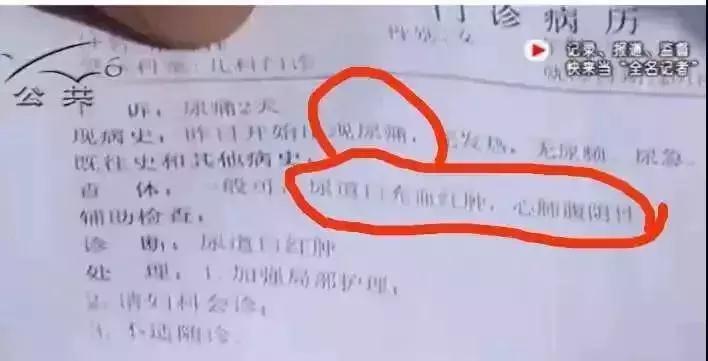 门诊病历
性别：女
记录、报道、监督
快来当“全名记者”
公共
科室：儿科门诊
主 诉：尿痛2天
现病史：昨日开始出现尿痛，无发热，无尿频、尿急
既往史和其他病史：
查 体：一般可，尿道口充血红肿，心肺腹阴性
辅助检查：
诊 断：尿道口红肿
处 理：1.加强局部护理；
2.请妇科会诊；
3.不适随诊.